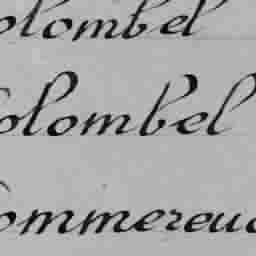 olombel
Colombel
ommereuc